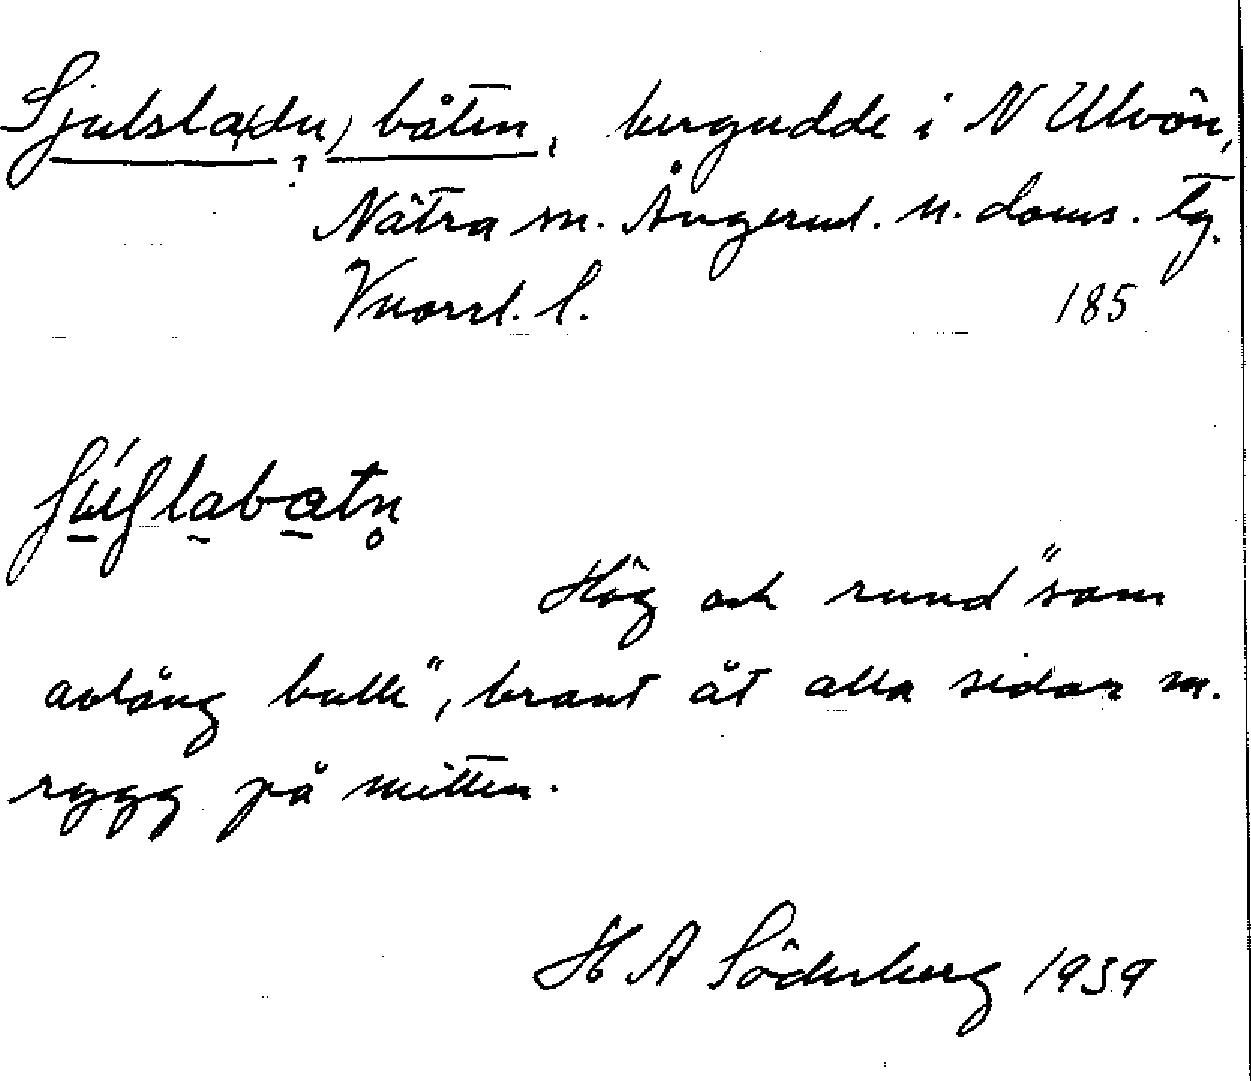 Sjulsla(du?) båten, bergudde i N Ulvön,
Nätra sn. Ångerml. n. doms. tg.
Vnorrl. l. 185
Hög och rund "som
avlång bulle", brant åt alla sidor m.
rygg på mitten.
H A Söderberg 1939